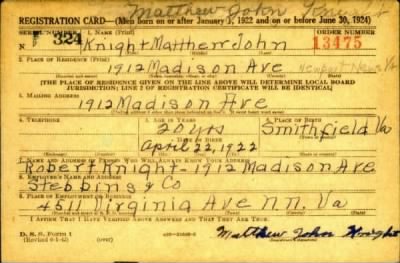 Matthew John Knight
REGISTRATION CARD—(Men born on or after January 1, 1922 and on or before June 30, 1924)
SERIAL NUMBER 1. NAME (Print) ORDER NUMBER
N 324 Knight Matthew John 13475
2. PLACE OF RESIDENCE (Print)
1912 Madison Ave Newport News Va
[THE PLACE OF RESIDENCE GIVEN ON THE LINE ABOVE WILL DETERMINE LOCAL BOARD
JURISDICTION; LINE 2 OF REGISTRATION CERTIFICATE WILL BE IDENTICAL]
3. MAILING ADDRESS
1912 Madison Ave
4. TELEPHONE 5. AGE IN YEARS 6. PLACE OF BIRTH
20 yrs Smithfield Va
DATE OF BIRTH
April 22, 1922
7. NAME AND ADDRESS OF PERSON WHO WILL ALWAYS KNOW YOUR ADDRESS
Robert Knight-1912 Madison Ave
8. EMPLOYER'S NAME AND ADDRESS
Stebbins & Co
4511 Virginia Ave N.N. Va
I AFFIRM THAT I HAVE VERIFIED ABOVE ANSWERS AND THAT THEY ARE TRUE.
D. S. S. Form 1 Matthew John Knight